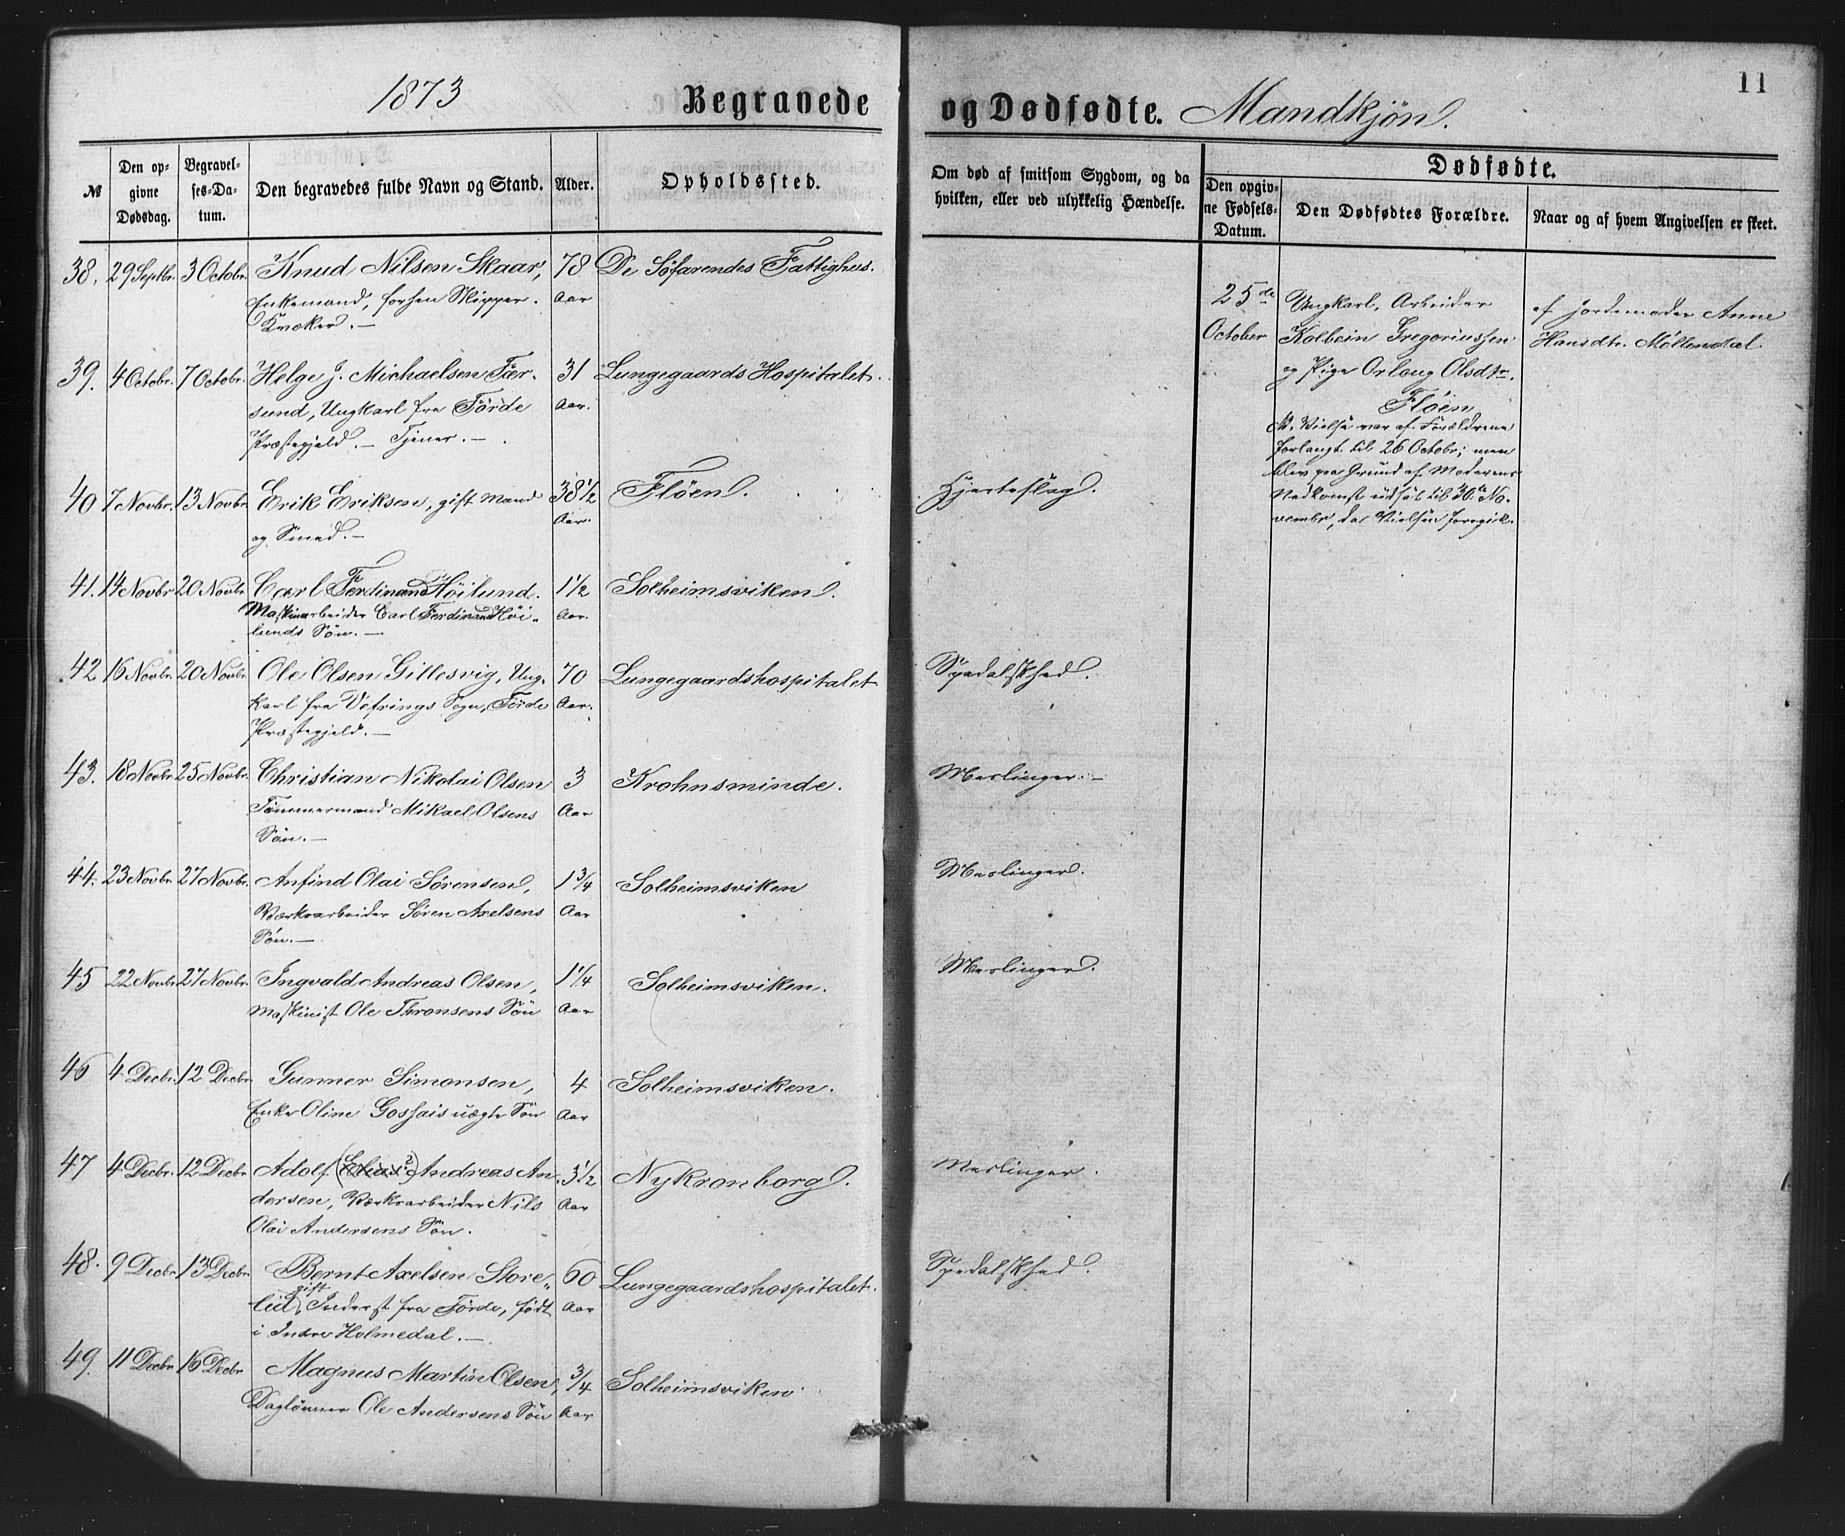 1873 Begravede og Dødfødte. Mandkjøn. 11
№ Den opgivne Dødsdag. Begravelses-Datum. Den begravedes fulde Navn og Stand. Alder. Opholdssted. Om død af smitsom Sygdom, og da hvilken, eller ved ulykkelig Hændelse.
Dødfødte.
Den opgivne Fødsels-Datum. Den Dødfødtes Forældre. Naar og af hvem Angivelsen er skeet.
38. 29 Septbr. 3 Octobr. Knud Nilsen Skaar, 78 De Søfarendes Fattighus.
Enkemand, forhen Skipper. Aar
Kvæker.—
39. 4 Octobr. 7 Octobr. Helge J. Michaelsen Fær- 31 Lungegaards Hospitalet.
sund, Ungkarl fra Förde Aar.
Præstegjeld.— Tjener.—
40 7 Novbr. 13 Novbr. Erik Eriksen, gift Mand 38½ Flöen. Hjerteslag.
og Smed.— Aar.
41. 14 Novbr 20 Novbr Carl Ferdinand Höilund. 1½ Solheimsviken.
Maskinarbeider Carl Ferdinand Höi- Aar.
lunds Sön.—
42 16 Novbr. 20 Novbr Ole Olsen Gillesvig, Ung- 70 Lungegaardshospitalet Spedalskhed.
karl fra Vefrings Sogn, Förde Aar.
Præstegjeld.—
43. 18 Novbr. 25 Novbr. Christian Nikolai Olsen 3 Krohnsminde. Meslinger.—
Tömmermand Mikael Olsens Aar
Sön.—
44. 23 Novbr. 27 Novbr. Anfind Olai Sörensen, 1¾ Solheimsviken Meslinger.
Værksarbeider Sören Axelsens Aar
Sön.—
45 22 Novbr 27 Novbr. Ingvald Andreas Olsen, 1¼ Solheimsviken. Meslinger.
Maskinist Ole Thronsens Sön Aar
46 4 Decbr. 12 Decbr. Gunner Simonsen, 4 Solheimsviken.
Enke Oline Gossais uægte Sön Aar
47 4 Decbr. 12 Decbr Adolf (Elias?) Andreas An- 3½ Nykronborg. Meslinger.
dersen, Værksarbeider Nils Aar
Olai Andersens Sön.
48. 9 Decbr. 13 Decbr Bernt Axelsen Store- 60 Lungegaardshospitalet. Spedalskhed.
lid, gift Inderst fra Förde, födt Aar
i Indre Holmedal.—
49. 11 Decbr 16 Decbr Magnus Martin Olsen, ¾ Solheimsviken
Daglönner Ole Andersens Sön Aar
25de October
Ungkarl, Arbeider
Kolbein Gregoriussen
og Pige Orlaug Olsdtr.
Flöen
N. Vielse var af Foreldrene
forlangt til 26 Octobr; men
blev paa Grund af Moderens
Nedkomst udsat til 30te No-
vember, da Vielsen foregik.
af Jordemoder Anne
Hansdtr. Möllendal.